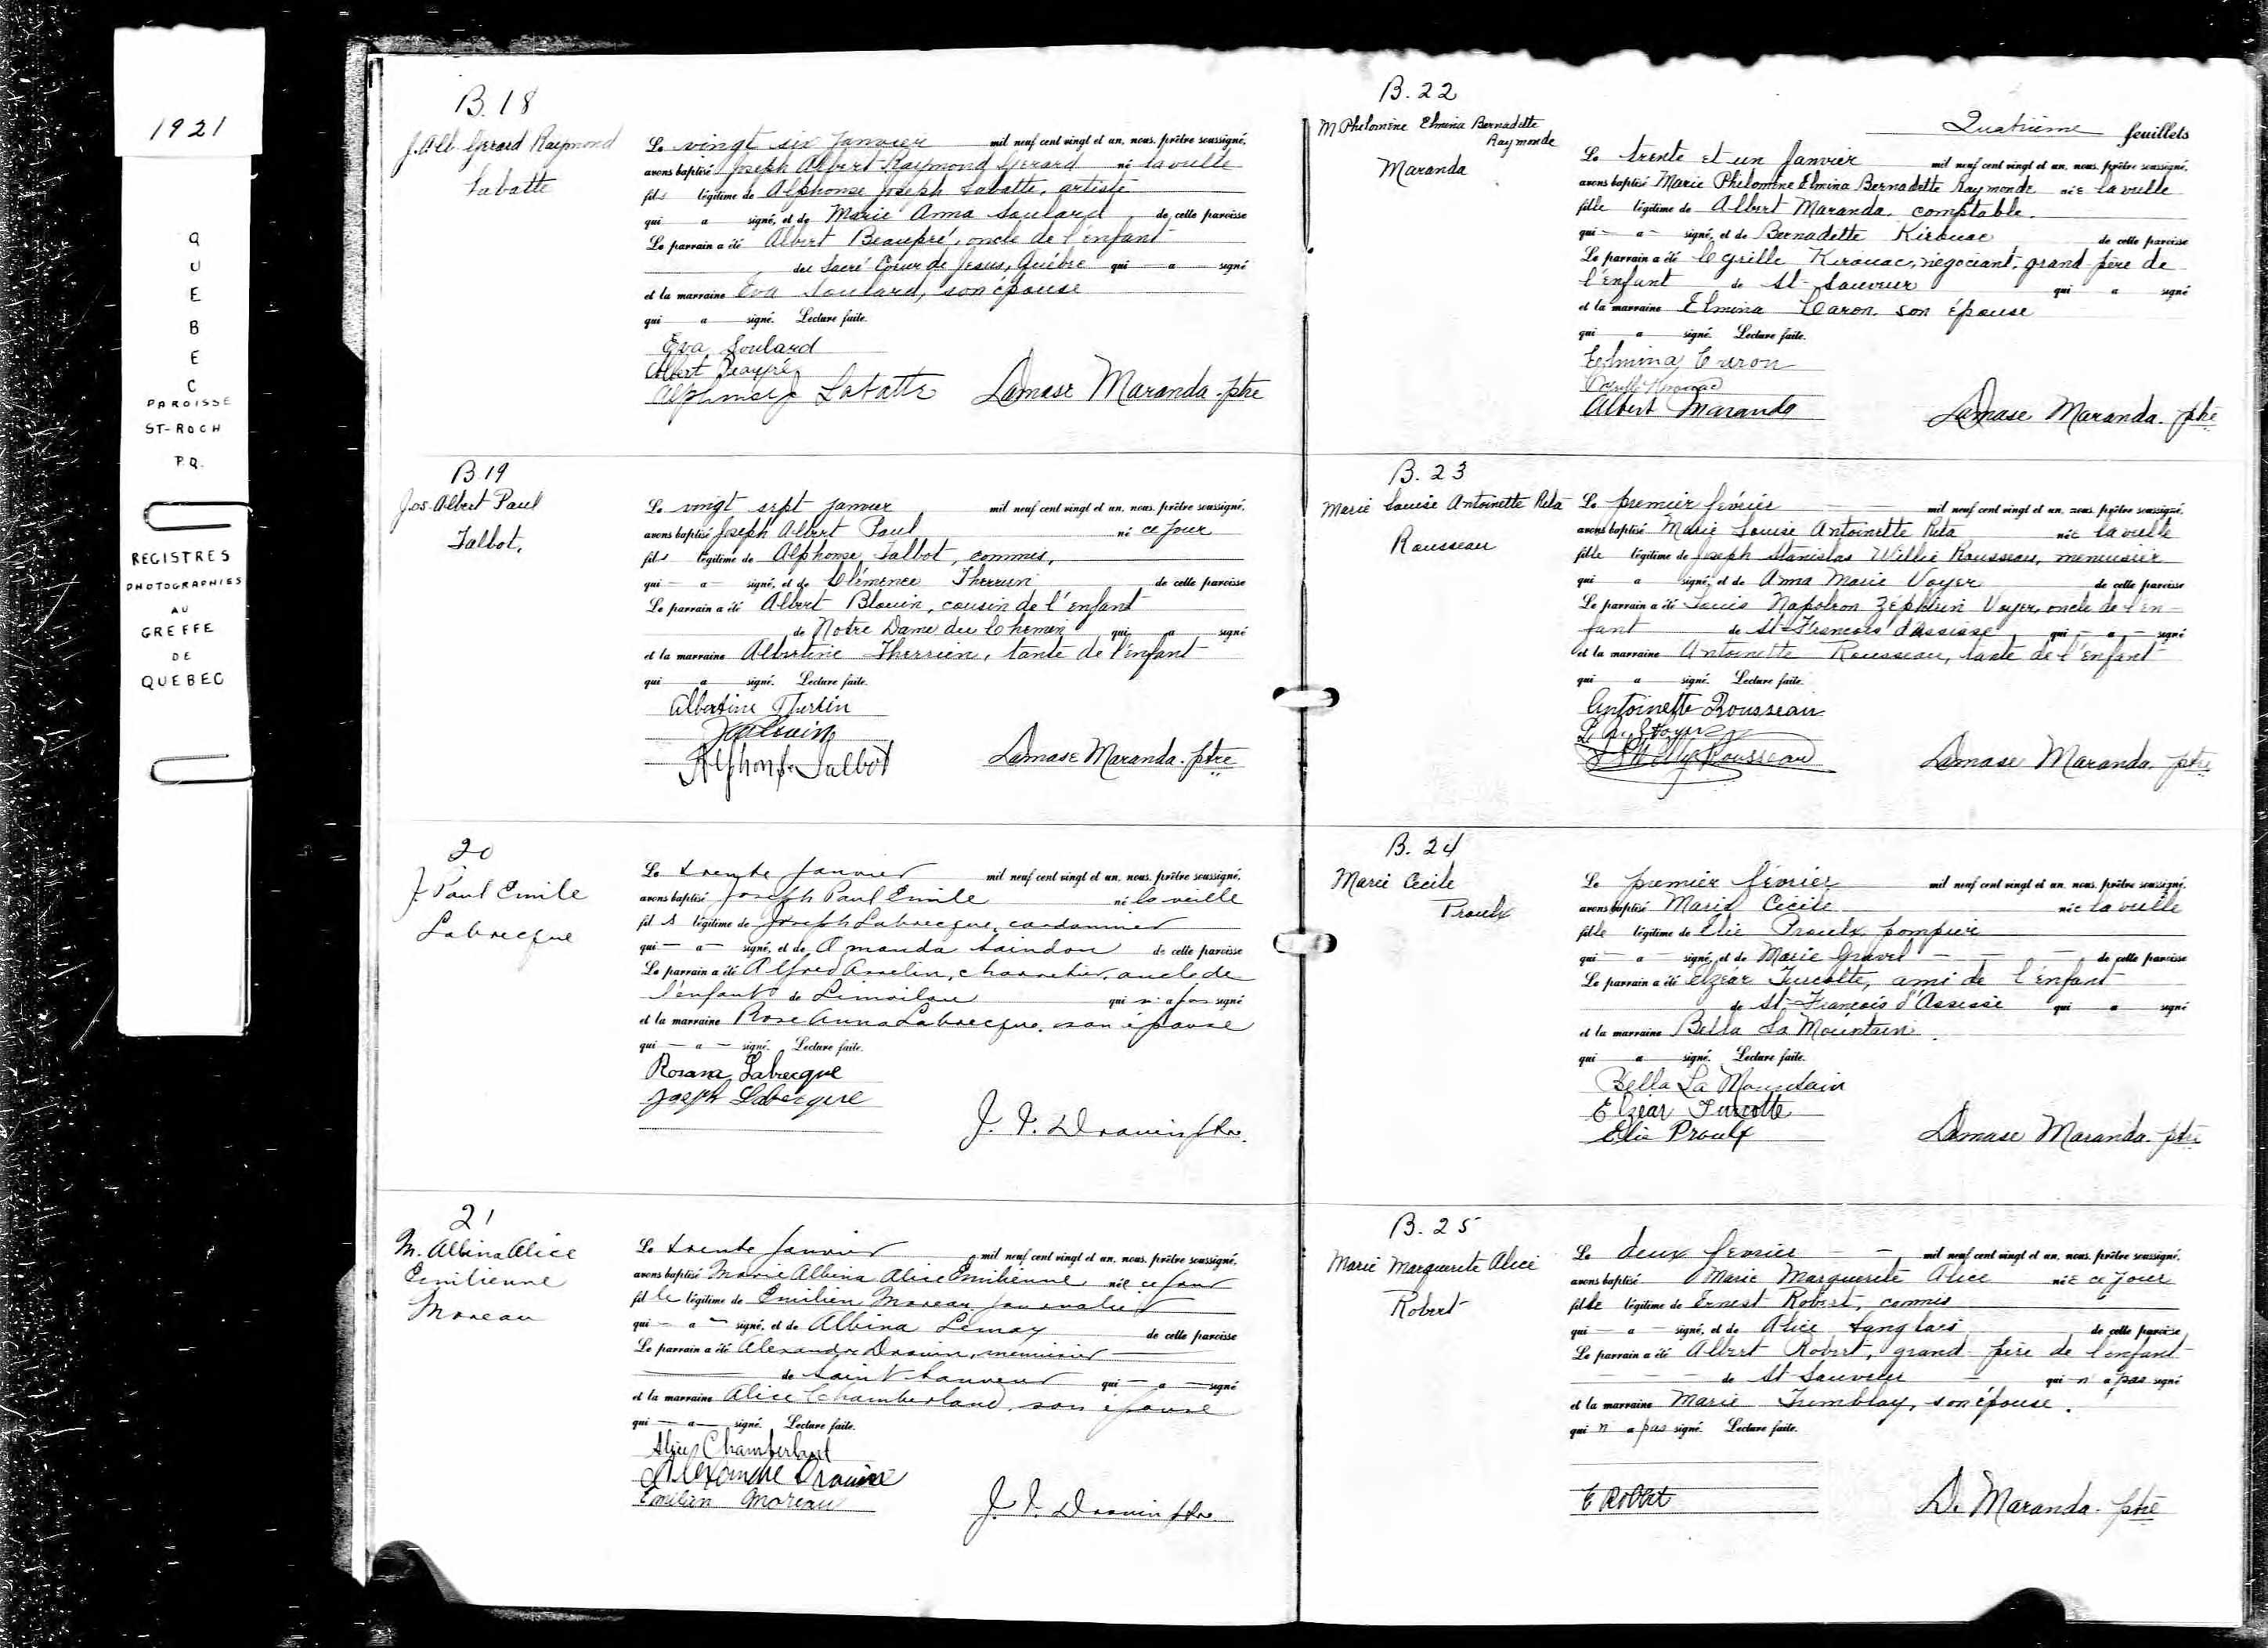 1921
QUEBEC
PAROISSE
ST-ROCH
P.Q.
REGISTRES
PHOTOGRAPHIES
AU
GREFFE
DE
QUEBEC
B.18
J. Alb. Gerard Raymond
Labatte
Le vingt six Janvier mil neuf cent vingt et un, nous, prêtre soussigné,
avons baptisé Joseph Albert Raymond Gerard né la veille
fils légitime de Alphonse Joseph Labatte, artiste
qui a signé, et de Marie Anna Soulard de cette paroisse
Le parrain a été Albert Beaupré, oncle de l'enfant
du Sacré Coeur de Jesus, Québec qui a signé
et la marraine Eva Soulard, son épouse
qui a signé. Lecture faite.
Eva Soulard
Albert Beaupré
Alphonse J Labatte Lamase Maranda. ptre
B.19
Jos. Albert Paul
Talbot.
Le vingt sept janvier mil neuf cent vingt et un, nous, prêtre soussigné,
avons baptisé Joseph Albert Paul né ce jour
fils légitime de Alphonse Talbot, commis,
qui - a - signé, et de Clémence Therrien de cette paroisse
Le parrain a été Albert Blouin, cousin de l'enfant
de Notre Dame du Chemin qui a signé
et la marraine Albertine Therrien, tante de l'enfant
qui a signé. Lecture faite.
Albertine Therien
Alphonse Talbot Damase Maranda. ptre
20
J. Paul Emile
Labrecque
Le trente Janvier mil neuf cent vingt et un, nous, prêtre soussigné,
avons baptisé Joseph Paul Emile né la veille
fils légitime de Joseph Labrecque, cordonnier
qui - a - signé, et de Amanda Saindon de cette paroisse
Le parrain a été Alfred Asselin, charretier, oncle de
l'enfant de Limoilou qui n'a pas signé
et la marraine Rose Anna Labrecque, son épouse
qui - a - signé. Lecture faite.
Rosana Labrecque
Joseph Labecque
J. Drouin ptre.
21
M. Albina Alice
Emilienne
Moreau
Le trente Janvier mil neuf cent vingt et un, nous, prêtre soussigné,
avons baptisé Marie Albina Alice Emilienne née ce jour
fille légitime de Emilien Moreau, journalier
qui - a - signé, et de Albina Lemay de cette paroisse
Le parrain a été Alexandre Drouin, menuisier
de Saint Sauveur qui - a - signé
et la marraine Alice Chamberland, son épouse
qui - a - signé. Lecture faite.
Alice Chamberland
Alexandre Drouin
Emilien Moreau J. Drouin ptre.
B.22
M. Philomène Elmina Bernadette
Raymonde
Maranda
Quatrième feuillets
Le trente et un Janvier mil neuf cent vingt et un, nous, prêtre soussigné,
avons baptisé Marie Philomène Elmina Bernadette Raymonde née la veille
fille légitime de Albert Maranda, comptable.
qui - a - signé, et de Bernadette Kirouac de cette paroisse
Le parrain a été Cyrille Kirouac, négociant, grand-père de
l'enfant de St-Sauveur qui a signé
et la marraine Elmina Caron, son épouse
qui a signé. Lecture faite.
Elmina Caron
Cyrille Kirouac
Albert Maranda Damase Maranda. ptre
B.23
Marie Louise Antoinette Rita
Rousseau
Le premier février mil neuf cent vingt et un, nous, prêtre soussigné,
avons baptisé Marie Louise Antoinette Rita née la veille
fille légitime de Joseph Stanislas Willie Rousseau, menuisier
qui a signé, et de Anna Marie Voyer de cette paroisse
Le parrain a été Louis Napoleon Zéphirin Voyer, oncle de l'en-
fant de St-Francois d'Assisse qui - a - signé
et la marraine Antoinette Rousseau, tante de l'enfant
qui a signé. Lecture faite.
Antoinette Rousseau
Rousseau Damase Maranda. ptre
B.24
Marie Cécile
Proulx
Le premier février mil neuf cent vingt et un, nous, prêtre soussigné,
avons baptisé Marie Cécile née la veille
fille légitime de Elie Proulx, pompier
qui - a - signé, et de Marie Gravel de cette paroisse
Le parrain a été Elzéar Turcotte, ami de l'enfant
de St-Francois d'Assisse qui a signé
et la marraine Bella La Mountain.
qui a signé. Lecture faite.
Bella La Mountain
Elzéar Turcotte
Elie Proulx Damase Maranda. ptre
B.25
Marie Marguerite Alice
Robert
Le deux février mil neuf cent vingt et un, nous, prêtre soussigné,
avons baptisé Marie Marguerite Alice née ce jour
fille légitime de Ernest Robert, commis
qui - a - signé, et de Alice Langlais de cette paroisse
Le parrain a été Albert Robert, grand-père de l'enfant
de St Sauveur qui n'a pas signé
et la marraine Marie Tremblay, son épouse.
qui n'a pas signé. Lecture faite.
E Robert D. Maranda. ptre